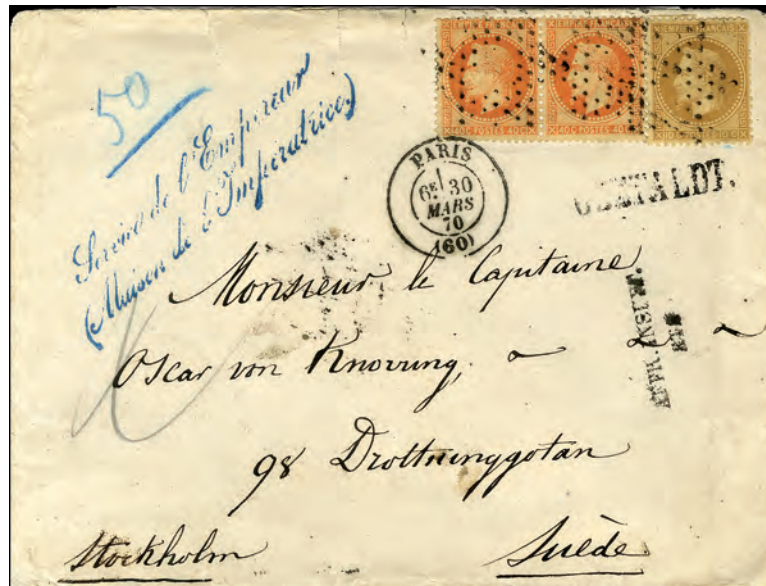 50
Service de l'Empereur
(Maison de l'Impératrice)
EMPIRE FRANÇAIS
40C POSTES 40C
EMPIRE FRANÇAIS
40C POSTES 40C
EMPIRE FRANÇAIS
PARIS
6E 30
MARS
70
(60)
Monsieur le Capitaine
Oscar von Knorring, a
98 Drottninggotan
Stockholm
Suède